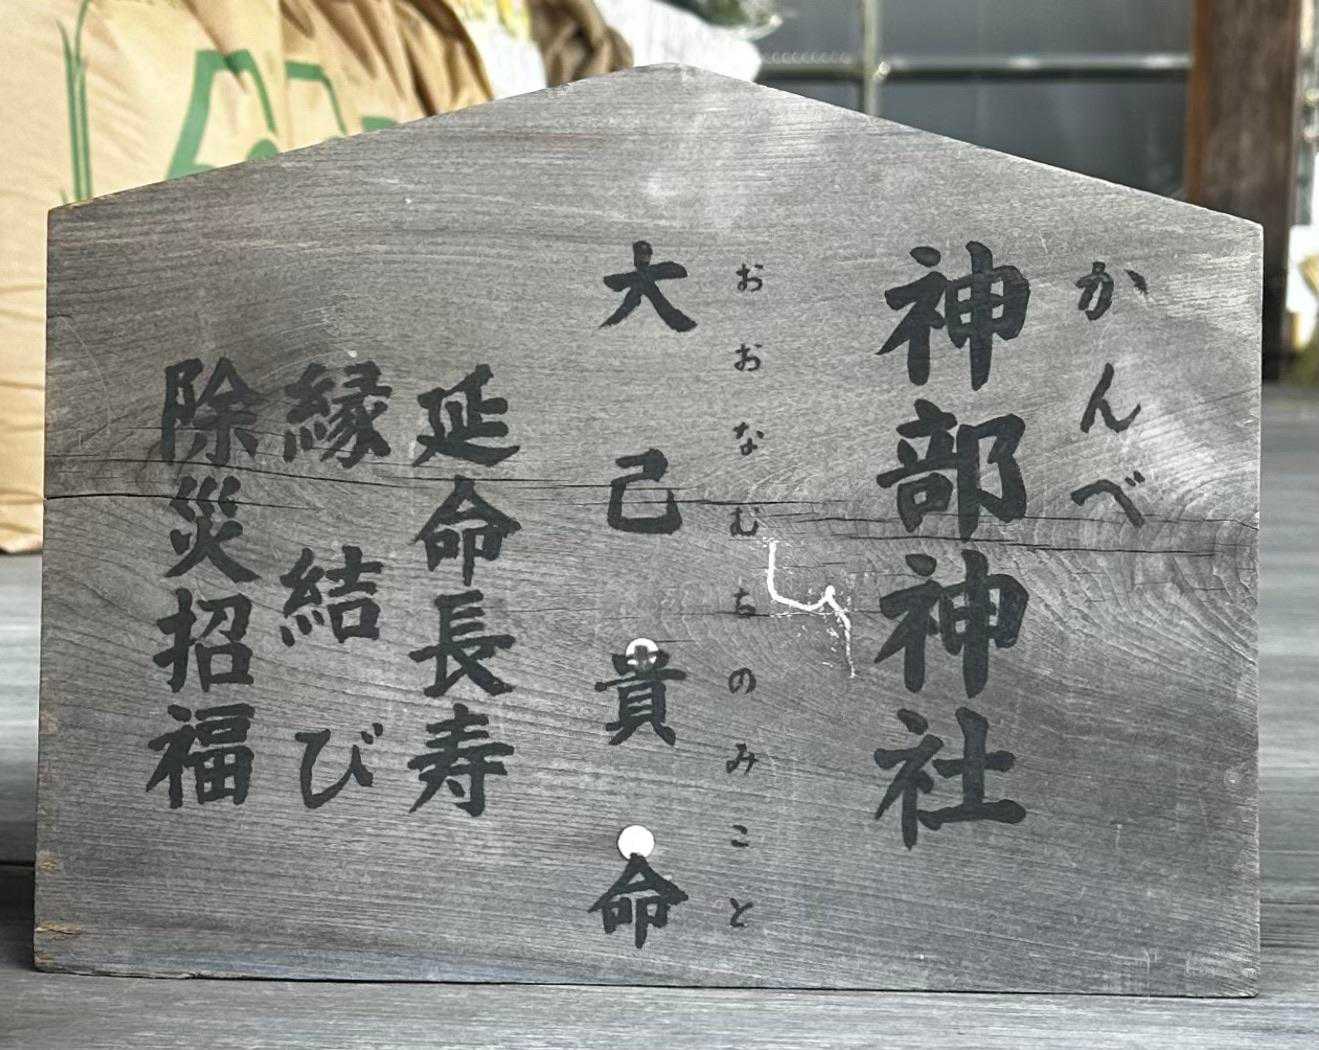 かんべ
神部神社
おおなむちのみこと
大己貴命
延命長寿
縁結び
除災招福